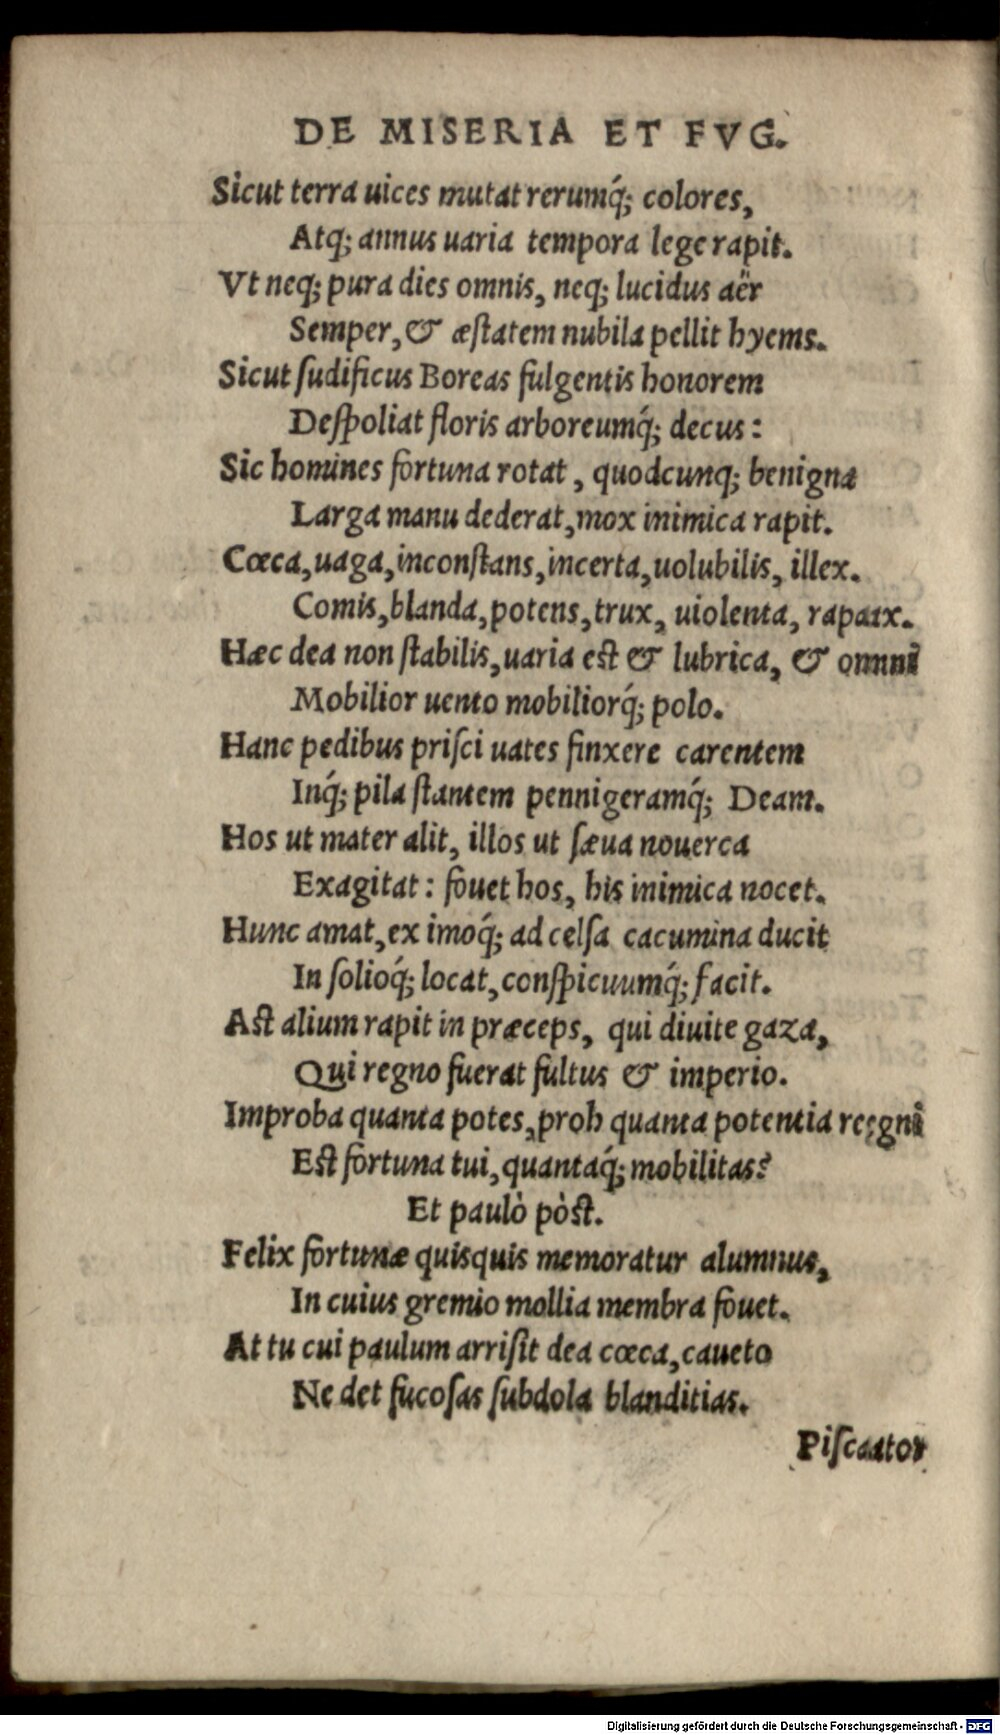 DE MISERIA ET FVG.
Sicut terra uices mutat rerumq́; colores,
Atq; annus uaria tempora lege rapit.
Vt neq; pura dies omnis, neq; lucidus aër
Semper, & æſtatem nubila pellit hyems.
Sicut ſudificus Boreas fulgentis honorem
Deſpoliat floris arboreumq́; decus:
Sic homines fortuna rotat, quodcunq; benigna
Larga manu dederat, mox inimica rapit.
Cœca, uaga, inconſtans, incerta, uolubilis, illex.
Comis, blanda, potens, trux, uiolenta, rapax.
Hæc dea non ſtabilis, uaria eſt & lubrica, & omni
Mobilior uento mobiliorq́; polo.
Hanc pedibus priſci uates finxere carentem
Inq́; pila ſtantem pennigeramq́; Deam.
Hos ut mater alit, illos ut ſæua nouerca
Exagitat: fouet hos, his inimica nocet.
Hunc amat, ex imoq́; ad celſa cacumina ducit
In ſolioq́; locat, conſpicuumq́; facit.
Aſt alium rapit in præceps, qui diuite gaza,
Qui regno fuerat fultus & imperio.
Improba quanta potes, proh quanta potentia regni
Eſt fortuna tui, quantaq́; mobilitas?
Et paulò pòſt.
Felix fortunæ quisquis memoratur alumnus,
In cuius gremio mollia membra fouet.
At tu cui paulum arriſit dea cœca, caueto
Ne det fucoſas ſubdola blanditias.
Piſcator
Digitalisierung gefördert durch die Deutsche Forschungsgemeinschaft - DFG